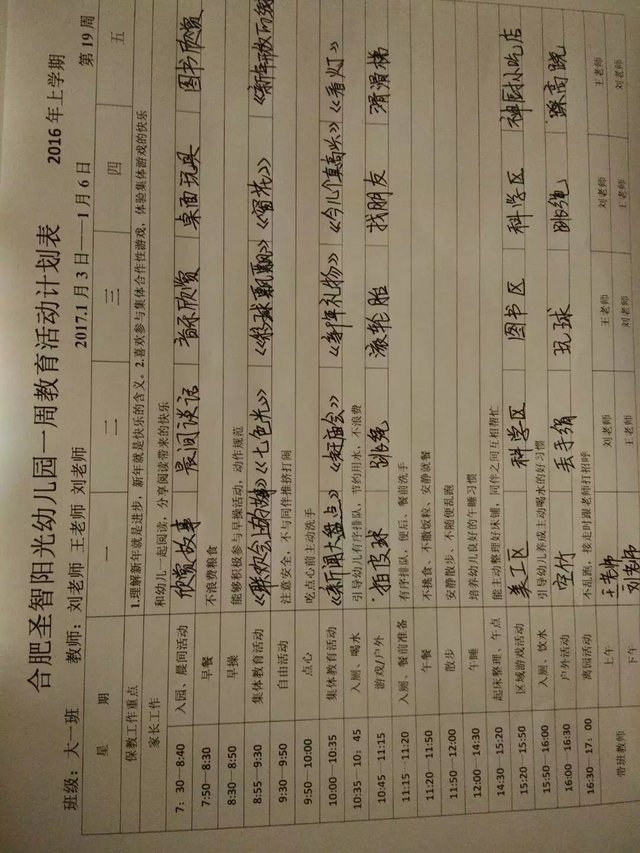 合肥圣智阳光幼儿园一周教育活动计划表 2016年上学期
班级：大一班 教师：刘老师 王老师 刘老师 2017.1月3日——1月6日 第19周
星期 一 二 三 四 五
保教工作重点 1.理解新年就是进步，新年就是快乐的含义。2.喜欢参与集体合作性游戏，体验集体游戏的快乐
家长工作 和幼儿一起阅读，分享阅读带来的快乐
7：30—8:40 入园、晨间活动 欣赏故事 晨间谈话 音乐欣赏 桌面玩具 图书欣赏
7:50—8:30 早餐 不浪费粮食
8:30—8:50 早操 能够积极参与早操活动，动作规范
8:55—9:30 集体教育活动 《联欢会上的故事》 《七色光》 《彩球飘飘》 《窗花》
9:30—9:50 自由活动 注意安全，不与同伴推挤打闹
9:50—10:00 点心 吃点心前主动洗手
10:00—10:35 集体教育活动 《新闻大盘点》 《赶庙会》 《新年礼物》 《今儿个真高兴》 《看灯》
10:35 10：45 入厕、喝水 引导幼儿有序排队，节约用水，不浪费
10:45—11:15 游戏/户外 拍皮球 跳绳 滚轮胎 找朋友 滑滑梯
11:15—11:20 入厕、餐前准备 有序排队，便后、餐前洗手
11:20—11:50 午餐 不挑食、不撒饭粒，安静就餐
11:50—12:00 散步 安静散步、不随便乱跑
12:00—14:30 午睡 培养幼儿良好的午睡习惯
14:30—15:20 起床整理、午点 能主动整理好床铺，同伴之间互相帮忙
15:20—15:50 区域游戏活动 美工区 科学区 图书区 科学区
15:50—16:00 入厕、饮水 引导幼儿养成主动喝水的好习惯
16:00—16:30 户外活动 空竹 丢手绢 玩球 跳绳 踩高跷
16:30—17：00 离园活动 不乱跑，接走时跟老师打招呼
带班教师 上午 王老师 刘老师 王老师 刘老师 王老师
下午 刘老师 王老师 刘老师 王老师 刘老师